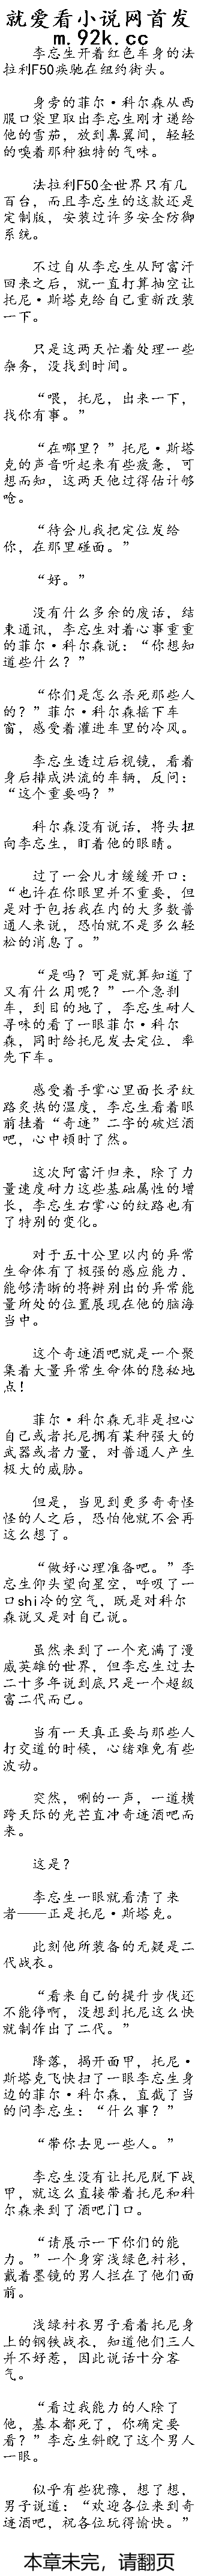 就爱看小说网首发
m.92k.cc
李忘生开着红色车身的法
拉利F50疾驰在纽约街头。
身旁的菲尔·科尔森从西
服口袋里取出李忘生刚才递给
他的雪茄，放到鼻翼间，轻轻
的嗅着那种独特的气味。
法拉利F50全世界只有几
百台，而且李忘生的这款还是
定制版，安装过许多安全防御
系统。
不过自从李忘生从阿富汗
回来之后，就一直打算抽空让
托尼·斯塔克给自己重新改装
一下。
只是这两天忙着处理一些
杂务，没找到时间。
“喂，托尼，出来一下，
找你有事。”
“在哪里？”托尼·斯塔
克的声音听起来有些疲惫，可
想而知，这两天他过得估计够
呛。
“待会儿我把定位发给
你，在那里碰面。”
“好。”
没有什么多余的废话，结
束通讯，李忘生对着心事重重
的菲尔·科尔森说：“你想知
道些什么？”
“你们是怎么杀死那些人
的？”菲尔·科尔森摇下车
窗，感受着灌进车里的冷风。
李忘生透过后视镜，看着
身后排成洪流的车辆，反问：
“这个重要吗？”
科尔森没有说话，将头扭
向李忘生，盯着他的眼睛。
过了一会儿才缓缓开口：
“也许在你眼里并不重要，但
是对于包括我在内的大多数普
通人来说，恐怕就不是多么轻
松的消息了。”
“是吗？可是就算知道了
又有什么用呢？”一个急刹
车，到目的地了，李忘生耐人
寻味的看了一眼菲尔·科尔
森，同时给托尼发去定位，率
先下车。
感受着手掌心里面长矛纹
路炙热的温度，李忘生看着眼
前挂着“奇迹”二字的破烂酒
吧，心中顿时了然。
这次阿富汗归来，除了力
量速度耐力这些基础属性的增
长，李忘生右掌心的纹路也有
了特别的变化。
对于五十公里以内的异常
生命体有了极强的感应能力，
能够清晰的将辨别出的异常能
量所处的位置展现在他的脑海
当中。
这个奇迹酒吧就是一个聚
集着大量异常生命体的隐秘地
点！
菲尔·科尔森无非是担心
自己或者托尼拥有某种强大的
武器或者力量，对普通人产生
极大的威胁。
但是，当见到更多奇奇怪
怪的人之后，恐怕他就不会再
这么想了。
“做好心理准备吧。”李
忘生仰头望向星空，呼吸了一
口shi冷的空气，既是对科尔
森说又是对自己说。
虽然来到了一个充满了漫
威英雄的世界，但李忘生过去
二十多年说到底只是一个超级
富二代而已。
当有一天真正要与那些人
打交道的时候，心绪难免有些
波动。
突然，唰的一声，一道横
跨天际的光芒直冲奇迹酒吧而
来。
这是？
李忘生一眼就看清了来
者——正是托尼·斯塔克。
此刻他所装备的无疑是二
代战衣。
“看来自己的提升步伐还
不能停啊，没想到托尼这么快
就制作出了二代。”
降落，揭开面甲，托尼·
斯塔克飞快扫了一眼李忘生身
边的菲尔·科尔森，直截了当
的问李忘生：“什么事？”
“带你去见一些人。”
李忘生没有让托尼脱下战
甲，就这么直接带着托尼和科
尔森来到了酒吧门口。
“请展示一下你们的能
力。”一个身穿浅绿色衬衫，
戴着墨镜的男人拦在了他们面
前。
浅绿衬衣男子看着托尼身
上的钢铁战衣，知道他们三人
并不好惹，因此说话十分客
气。
“看过我能力的人除了
他，基本都死了，你确定要
看？”李忘生斜睨了这个男人
一眼。
似乎有些犹豫，想了想，
男子说道：“欢迎各位来到奇
迹酒吧，祝各位玩得愉快。”
本章未完，请翻页